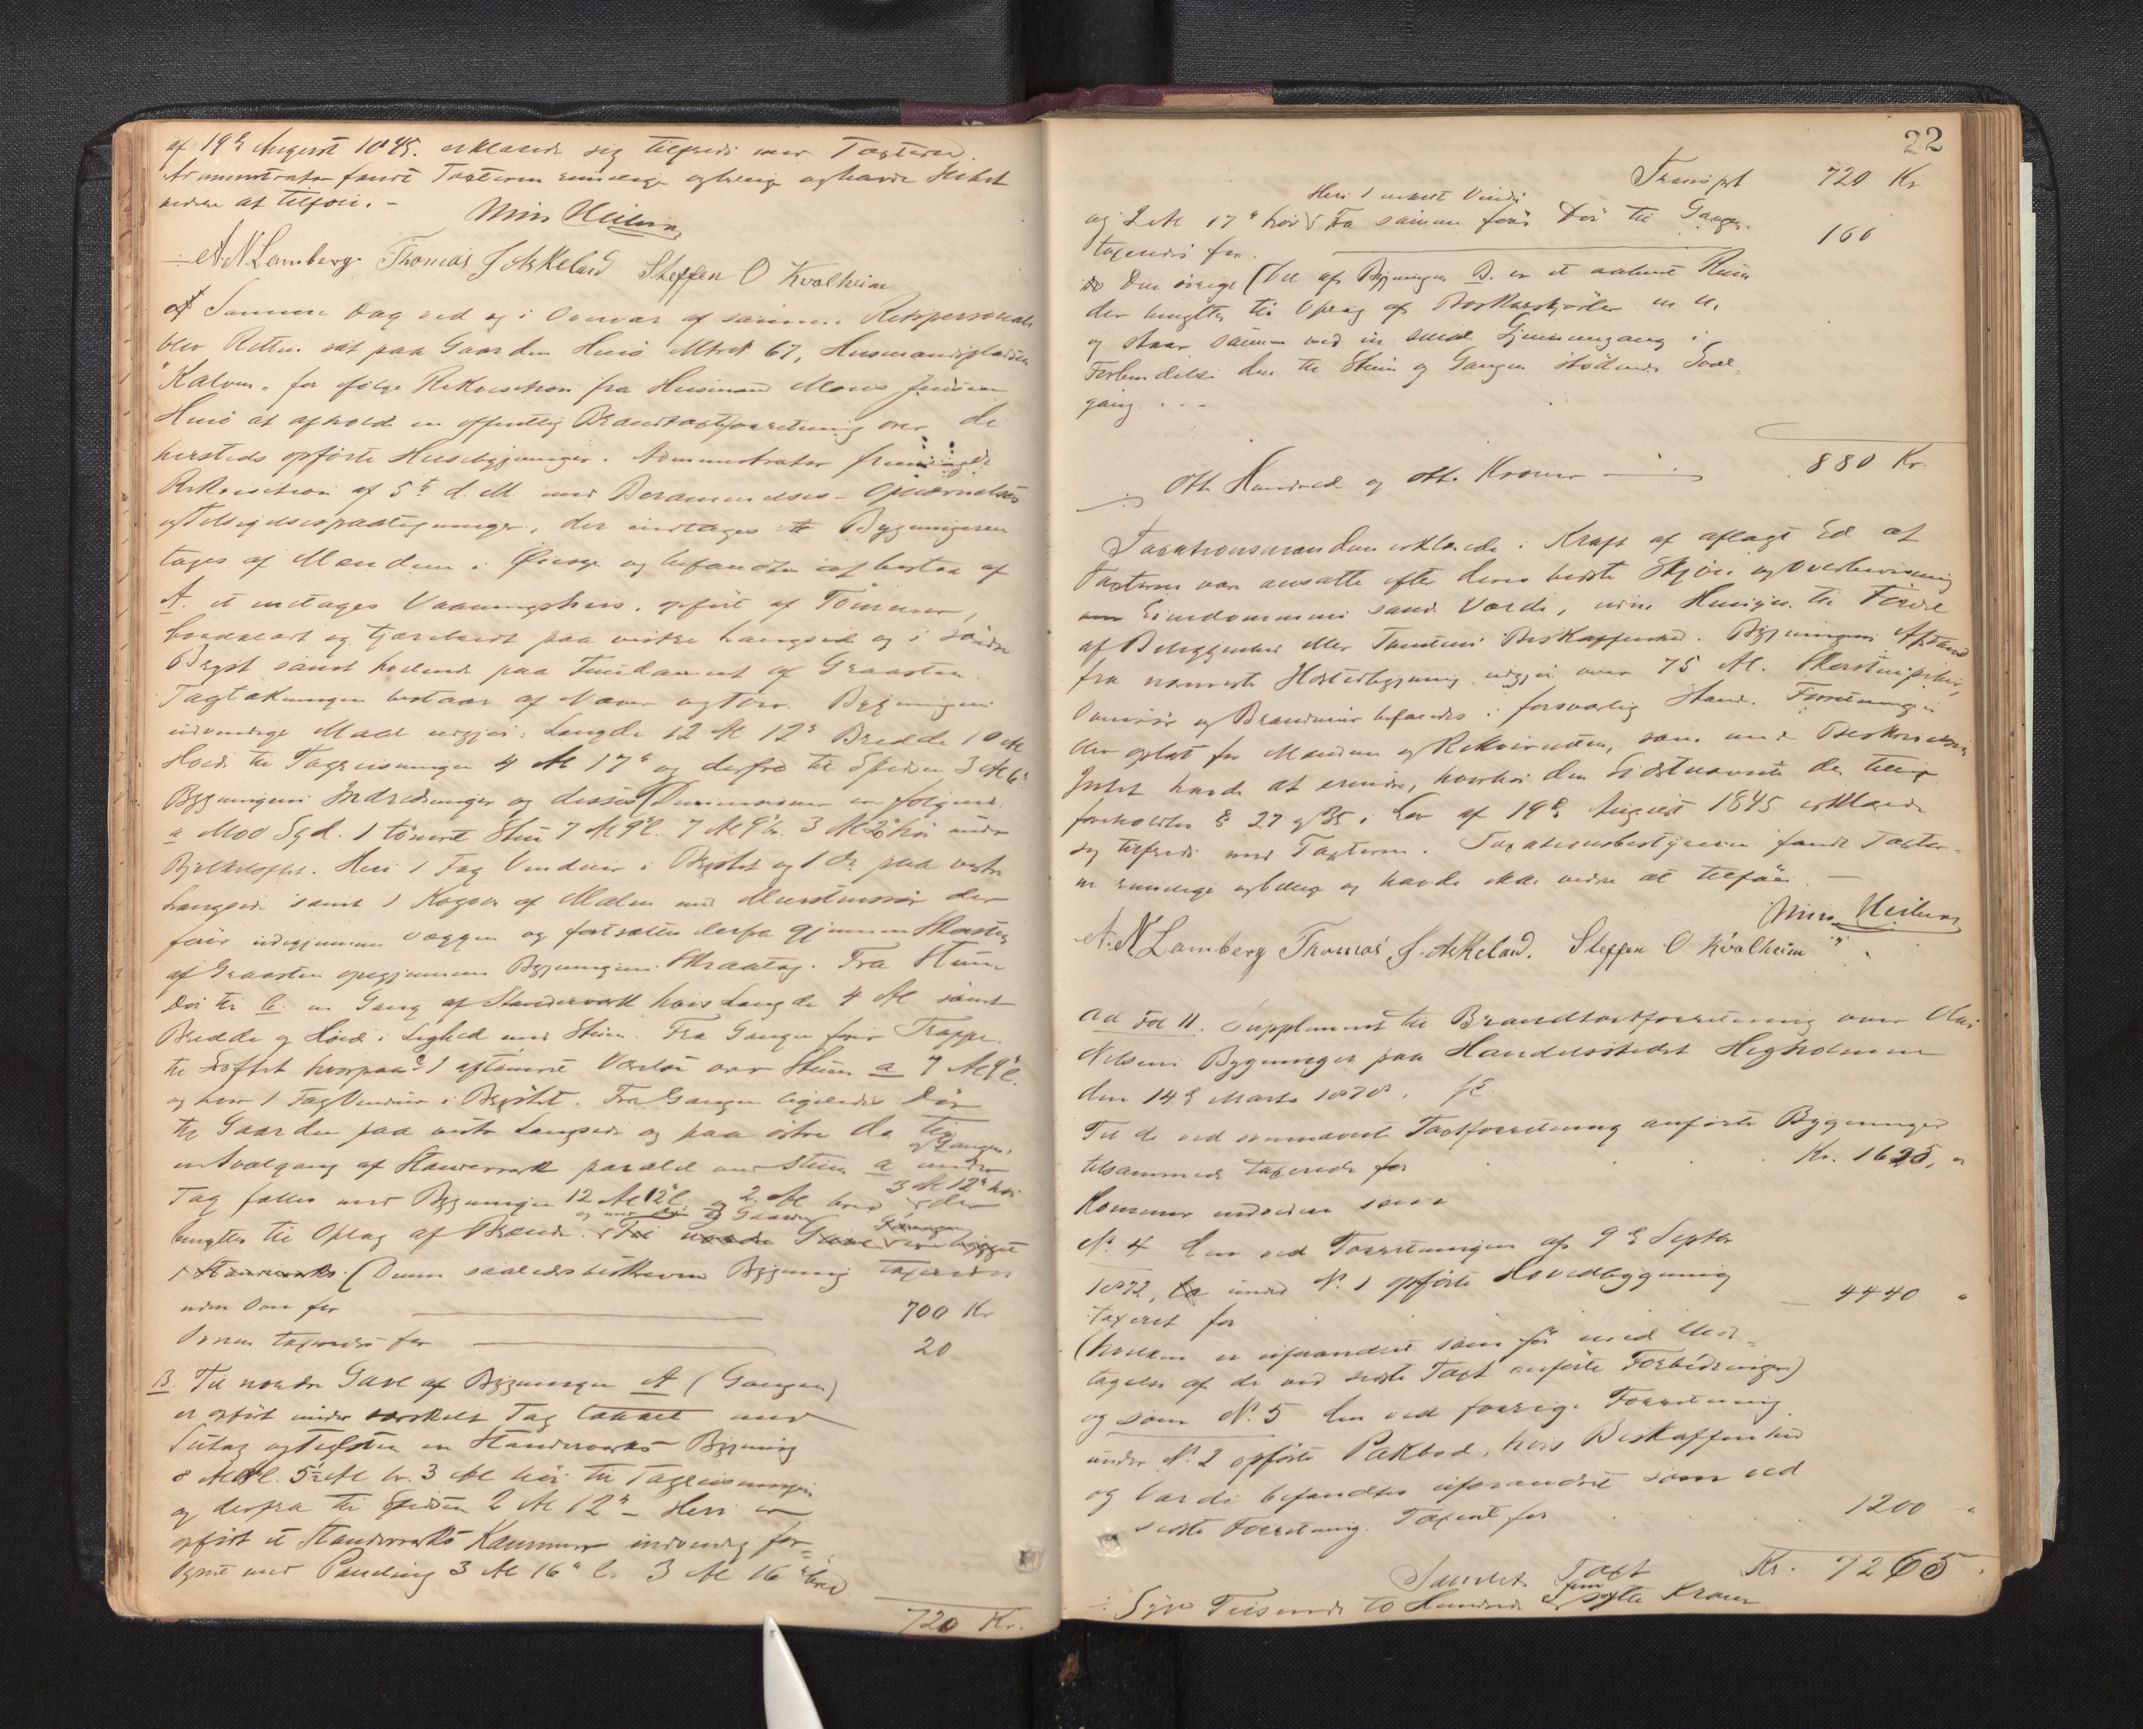 af 19de August 1845. erklærede sig tilfreds med Taxterne.
Administrator fandt Taxterne rimelige og billige og havde Intet
videre at tilføie. -
A. N. Lamberg Thomas J Askeland Steffen O Kvalheim
Samme Dag ved og i Overvær af samme Retspersonale
blev Retten sat paa Gaarden Husø Mtr № 67, Husmandspladsen
"Kalven" ifølge Rekvisition fra Husmand Mons Jensen
Husø at afholde en offentlig Brandtaxtforretning over de
hersteds opførte Husebygninger. Administrator fremlagde
Rekvisition af 5te d. M. med Beramnelses- Opnævnelses
og Tilsigelsespaategninger, der indtages Bygningerne
toges af Mændene i Øiesyn og befandtes at bestaa af
A. et etages Vaaningshus, opført af Tømmer,
bordklædt og tjærebredt paa vestre Langside og i søndre
Bryst samt hvilende paa Fundament af Graasten.
Tagtækningen bestaar af Næver og Torv. Bygningens
udvendige Maal udgjør: Længde 12 Al 12" Bredde 10 Al
Høide til Tagreisningen 4 Al 17" og derfra til Spidsen 3 Al 6"
Bygningens Indredninger og disses Dimensioner er følgende:
a Mod Syd. 1 tømret Stue 7 Al 9" l. 7 Al 9" br. 3 Al 20" høi under
Bjelkeloftet. Heri 1 Fag Vinduer i Brystet og 1 do paa vestre
Langside samt 1 Kogeovn af Malm med Murstensrør der
fører udigjennem Væggen og fortsættes derfra gjennem Skorsten
af Graasten opigjennem Bygningens Skraatag. Fra Stuen
Dør til b. en Gang af Stenderværk hvis Længde 4 Al samt
Bredde og Høide i Lighed med Stuen. Fra Gangen fører Trappe
til Loftet hvorpaa 1 aftømret Værelse over Stuen a 7 Al 9" l.
og hvor 1 Fag Vinduer i Brystet. Fra Gangen ligeledes Dør
til Gaarden paa vestre Langside og paa østre do til
og Gangen,
en Svalgang af Stenderværk paralel med Stuen a under
3 Al 12" høi
Tag fælles med Bygningen 12 Al 12" l. og 2 Al bred der
benyttes til Oplag af Brænde.
(Denne saaledes beskrevne Bygning taxeredes
uden Ovn for 700 Kr
Ovnen taxeredes for 20
B. Til nordre Gavl af Bygningen A (Gangen)
er opført under særskilt Tag tækket med
Sutag og Teglsten en Stenderværks Bygning
8 Al l. 5½ Al br. 3 Al høi til Tagreisningen
og derfra til Spidsen 2 Al 12" - Heri er
opført et Stenderværks Kammer indvendig for-
synet med Paneling 3 Al 16" l. 3 Al 16" bred
720 Kr.
22
Transport 720 Kr
Heri 1 enkelt Vindu
og 2 Al 17" høi. Fra samme fører Dør til Gangen.
taxeredes for 160
Den øvrige Del af Bygningen B. er et aabent Rum
der benyttes til Oplag af m. m.
og staar samme ved en smal Gjennemgang i
Forbindelse den til Stuen og Gangen stødende Sval-
gang. - -
880 Kr.
Otte Hundrede og otti Kroner
Taxationsmændene erklærede i Kraft af aflagt Ed at
Taxterne var ansatte efter deres bedste Skjøn og Overbevisning
om Eiendommens sande Værdi, uden Hensyn til Fordel
af Beliggenhed eller Tomtens Beskaffenhed. Bygningens Afstand
fra nærmeste Hosliebygning udgjør over 75 Al. Skorstenspiber,
Ovnsrør og Brandmur befandtes i forsvarlig Stand. Forretningen
blev oplæst for Mændene og Rekvirenten, som mod Beskrivelsen
Intet havde at erindre, hvorhos den Sidstnævnte der tillige
foreholdtes § 27 og 35 i Lov af 19de August 1845 erklærede
sig tilfreds med Taxterne. Taxationsbestyreren fandt Taxter-
ne rimelige og billige og havde ikke videre at tilføie. -
A. N Lamberg Thomas J. Askeland. Steffen O Kvalheim
Ad Fol 11. Supplement til Brandtaxtforretning over Olai
Nilsens Bygninger paa Handelsstedet Hegholmen
den 14de Marts 1878.
Til de ved ommeldte Taxtforretning anførte Bygninger
tilsammen taxerede for Kr. 1625, "
Kommer endvidere som
№ 4 den ved Forretningen af 9de Septbr
1872, under № 1 opførte Hovedbygning
taxeret for 4440 "
(hvilken er uforandret som før med Und-
tagelse af de ved sidste Taxt anførte Forbedringer)
og som № 5 den ved forrige Forretning
under № 2 opførte Pakbod, hvis Beskaffenhed
og Værdi befandtes uforandret som ved
sidste Forretning. Taxeret for 1200 "
Samlet Taxt Kr. 7265.
Syv Tusinde to Hundrede fem sexti Kroner